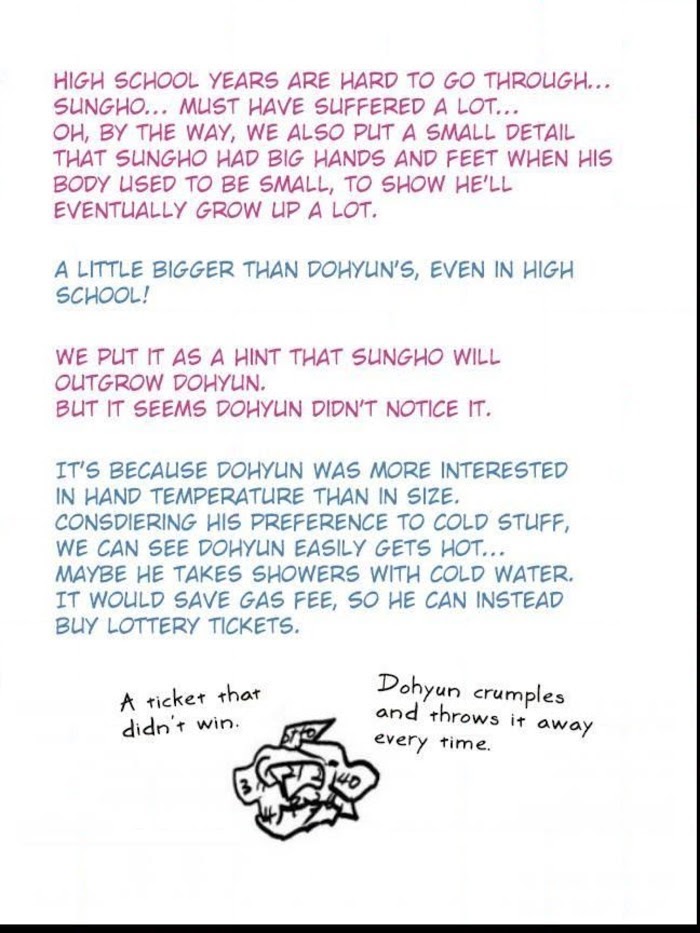 HIGH SCHOOL YEARS ARE HARD TO GO THROUGH...
SUNGHO... MUST HAVE SUFFERED A LOT...
OH, BY THE WAY, WE ALSO PUT A SMALL DETAIL
THAT SUNGHO HAD BIG HANDS AND FEET WHEN HIS
BODY USED TO BE SMALL, TO SHOW HE'LL
EVENTUALLY GROW UP A LOT.
A LITTLE BIGGER THAN DOHYUN'S, EVEN IN HIGH
SCHOOL!
WE PUT IT AS A HINT THAT SUNGHO WILL
OUTGROW DOHYUN.
BUT IT SEEMS DOHYUN DIDN'T NOTICE IT.
IT'S BECAUSE DOHYUN WAS MORE INTERESTED
IN HAND TEMPERATURE THAN IN SIZE.
CONSDIERING HIS PREFERENCE TO COLD STUFF,
WE CAN SEE DOHYUN EASILY GETS HOT...
MAYBE HE TAKES SHOWERS WITH COLD WATER.
IT WOULD SAVE GAS FEE, SO HE CAN INSTEAD
BUY LOTTERY TICKETS.
A ticket that
didn't win.
Dohyun crumples
and throws it away
every time.
3
40